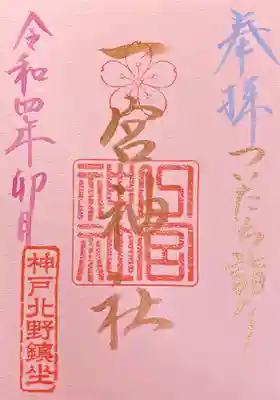 奉拝 ついたち詣り
一宮神社
一宮神社
令和四年 卯月
神戸北野鎮坐